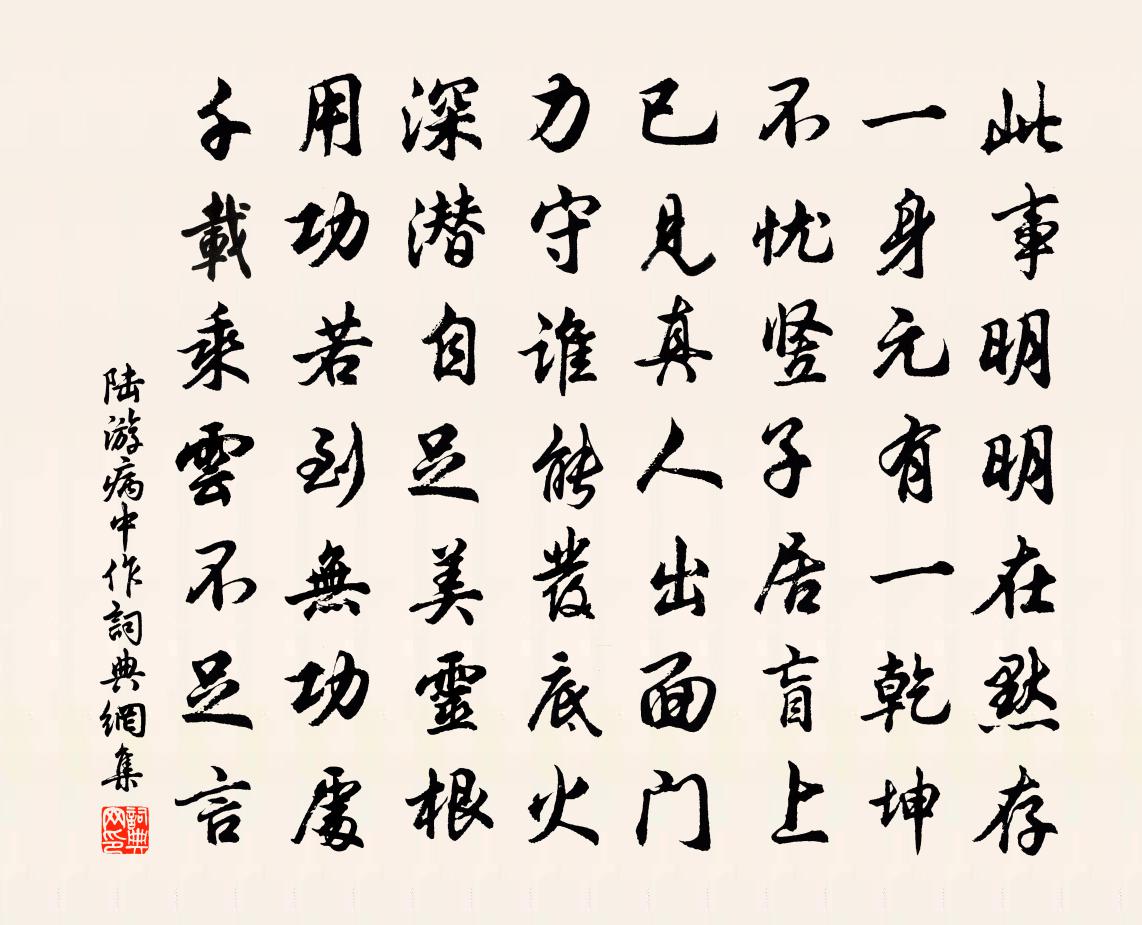 此事明明在默存
一身元有一乾坤
不忧竖子居肓上
已见真人出面门
力守谁能發底火
深潜自足美靈根
用功若到無功處
千載乘雲不足言
陆游病中作詞典網集
詞典網印